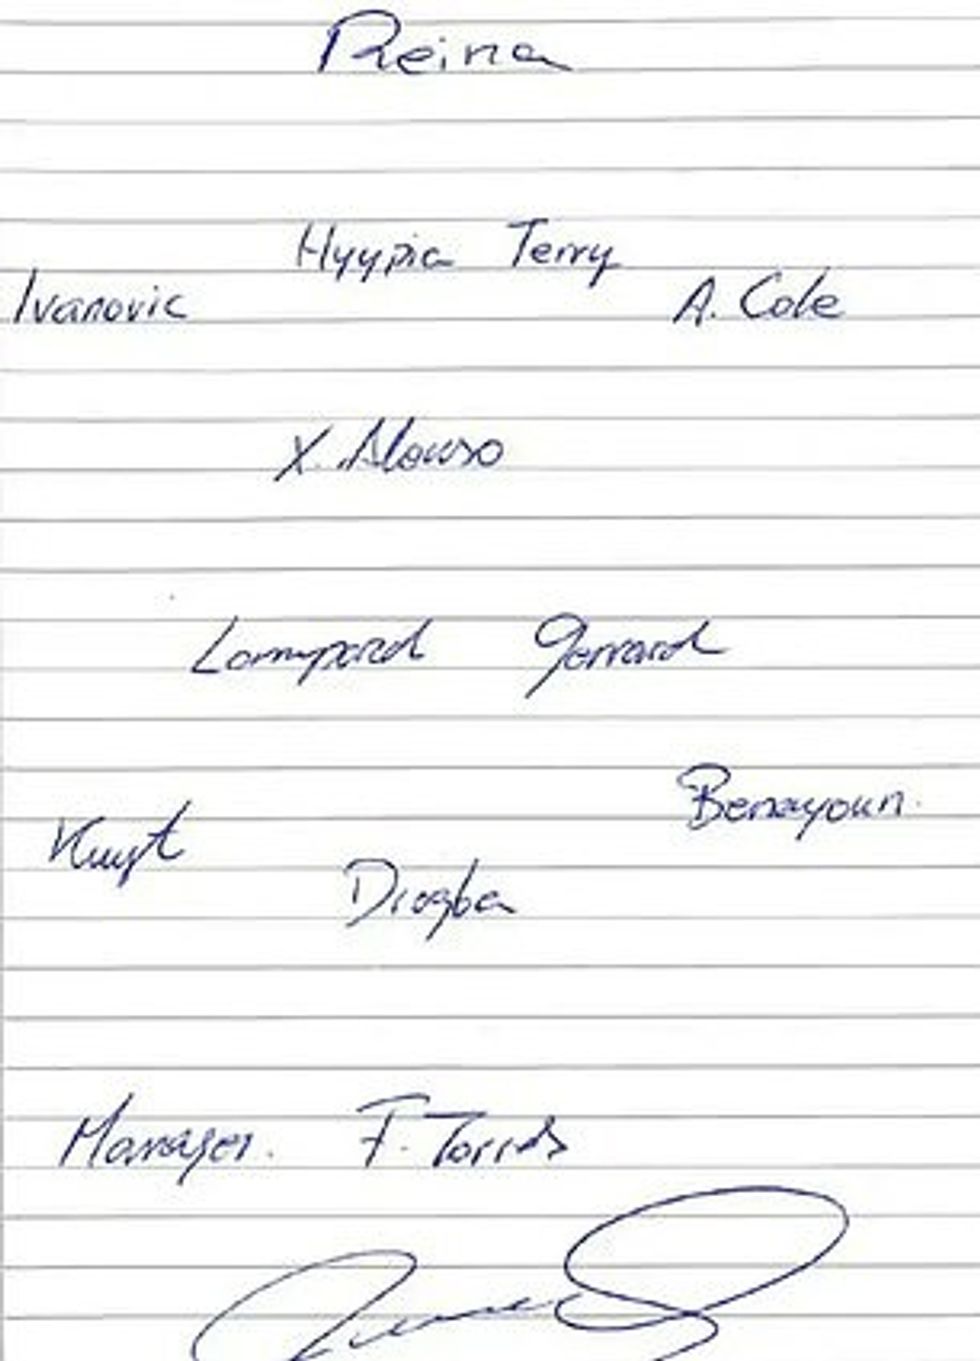 Reina
Hyypia Terry
Ivanovic A. Cole
X. Alonso
Lampard Gerrard
Benayoun.
Kuyt
Drogba
Manager. F. Torres